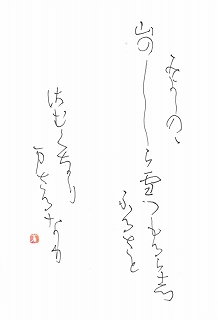 みよしのゝ
山のしら雪つもるらし
ふるさと
さむくなり
まさるなり